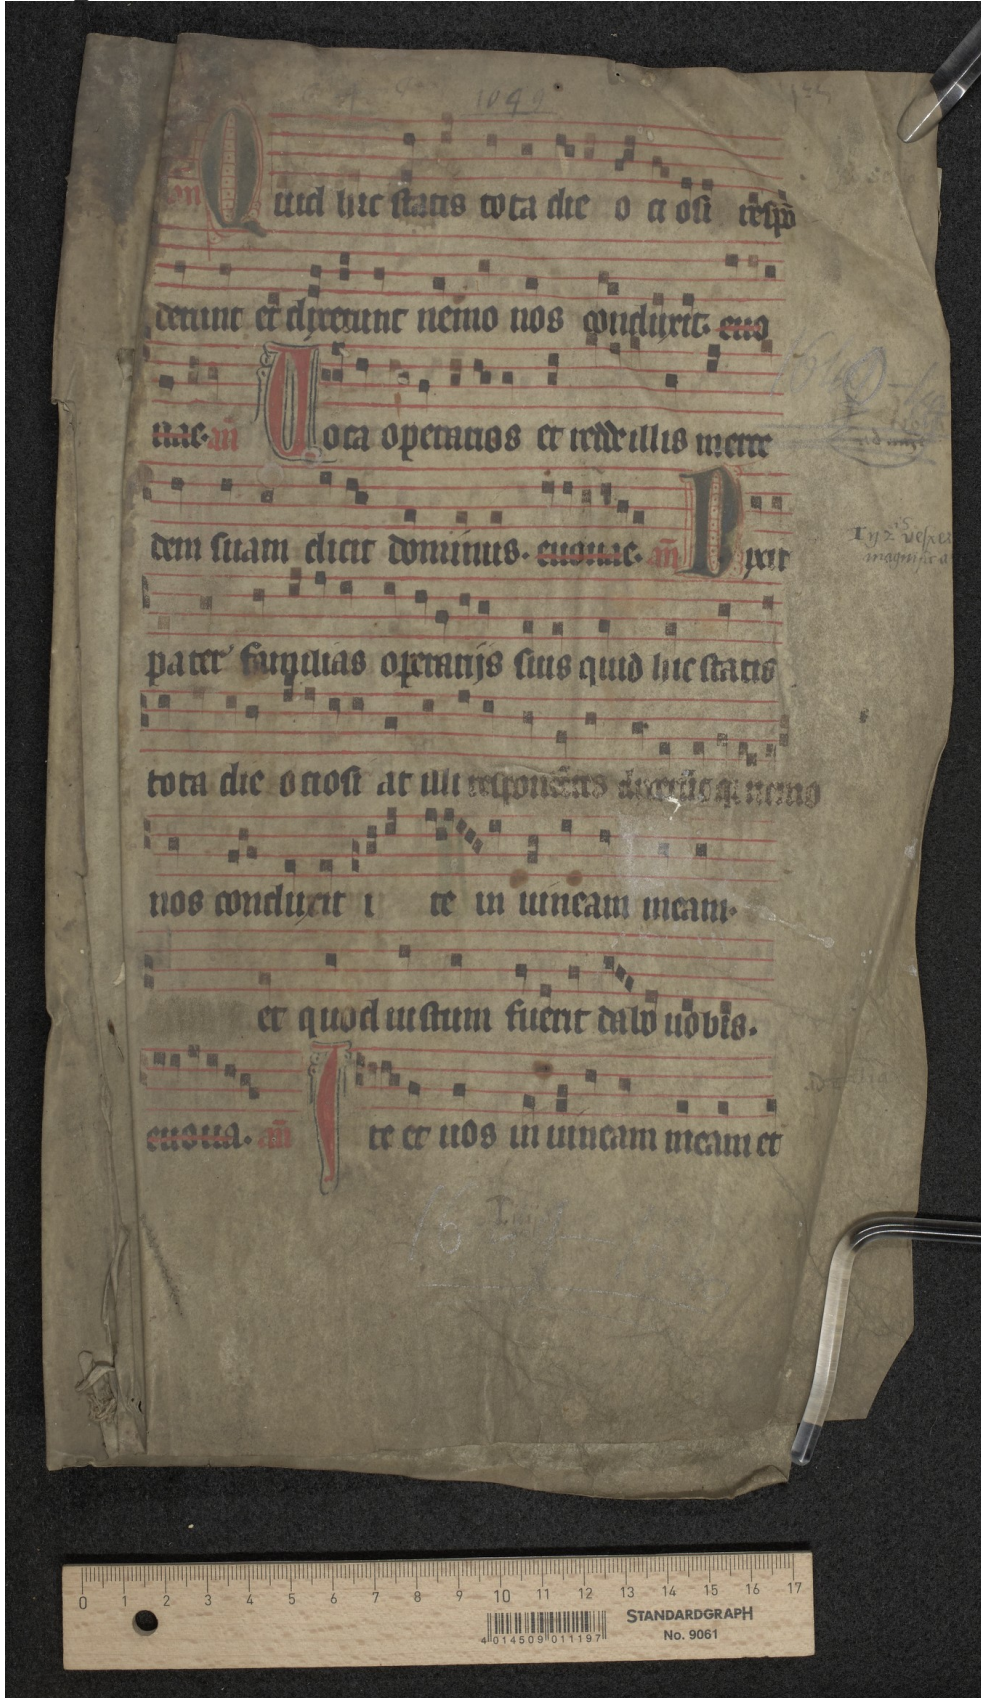 1049
an Quid hic statis tota die o ci osi respō
derunt et dixerunt nemo nos conduxit. euo
uae. an Uoca operarios et redde illis merce
dem suam dicit dominus. euouae. an Dixit
pater familias operarijs suis quid hic statis
tota die ociosi at illi respondentes dixerunt quia nemo
nos conduxit i te in uineam meam.
et quod iustum fuerit dabo uobis.
euoua. an Ite et uos in uineam meam et
0 1 2 3 4 5 6 7 8 9 10 11 12 13 14 15 16 17
STANDARDGRAPH
No. 9061
4 014509 011197